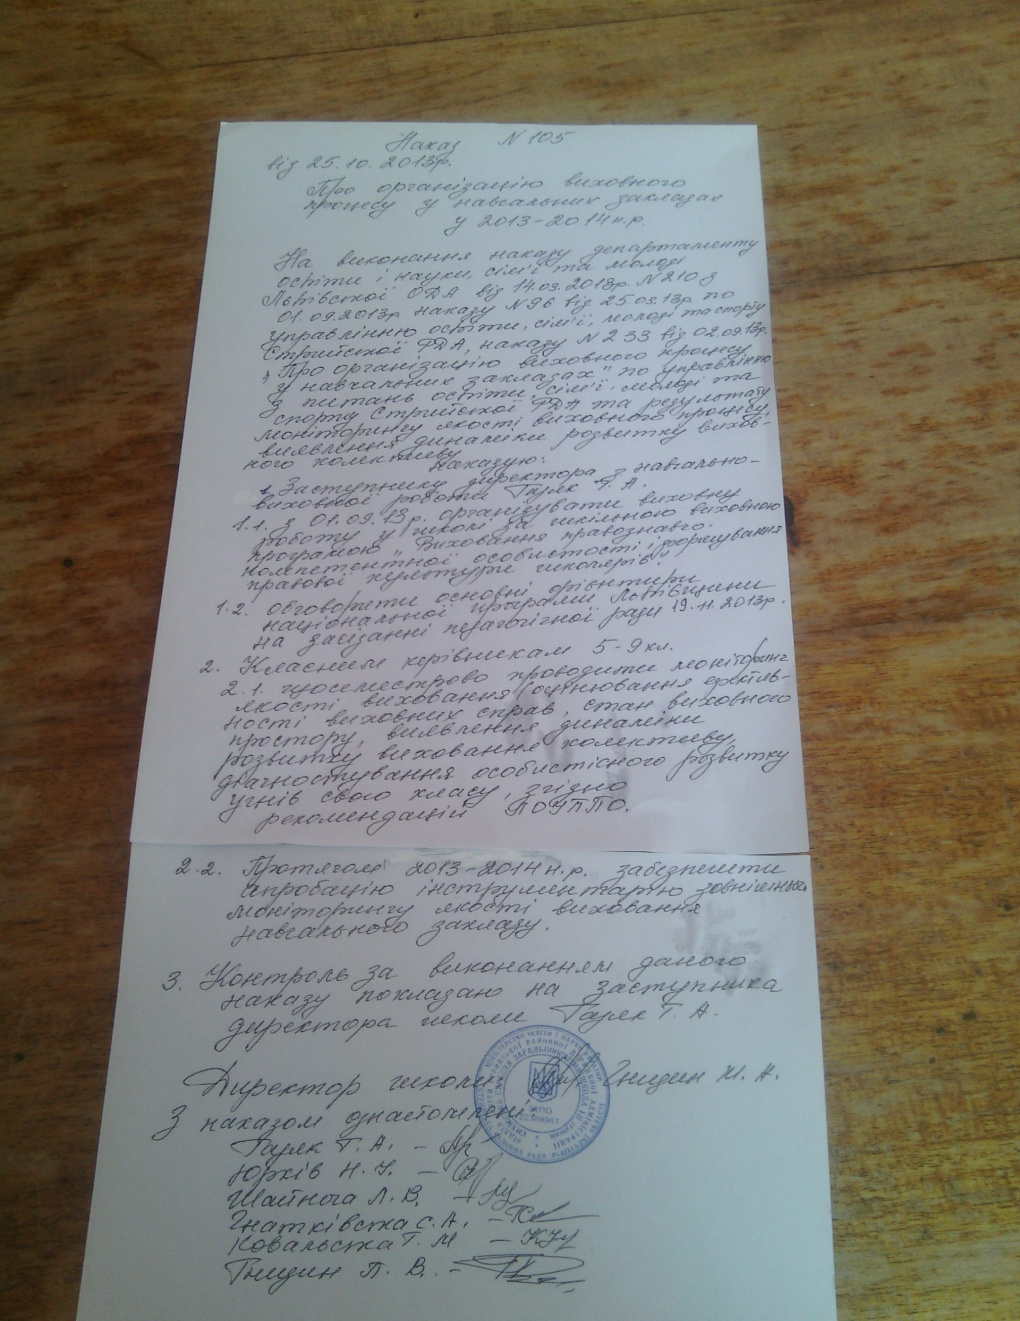 Наказ N 105
від 25.10.2013р.
Про організацію виховного
процесу у навчальних закладах
у 2013-2014 н.р.
На виконання наказу департаменту
освіти і науки, сім'ї та молоді
Львівської ОДА від 14.03.2013р. N 210 з
01.09.2013р наказу N 96 від 25.03.13р по
управлінню освіти, сім'ї, молоді та спорту
Стрийської РДА, наказу N 233 від 02.09.13р.
„Про організацію виховного процесу
у навчальних закладах" по управлінню
з питань освіти, сім'ї, молоді та
спорту Стрийської РДА та результату
моніторингу якості виховного процесу,
виявлення динаміки розвитку вихов-
ного колективу
Наказую:
1. Заступнику директора з навчально-
виховної роботи Галяк Г.А.
1.1. з 01.09.13р. організувати виховну
роботу у школі за шкільною виховною
програмою „Виховання правознавчо-
компетентної особистості і формування
правової культури школярів".
1.2. обговорити основні орієнтири
національної програми Львівщини
на засіданні педагогічної ради 19.11.2013р.
2. Класним керівникам 5-9 кл.
2.1. щосеместрово проводити моніторинг
якості виховання (оцінювання ефектив-
ності виховних справ, стан виховного
простору, виявлення динаміки
розвитку виховання колективу,
діагностування особистісного розвитку
учнів свого класу, згідно
рекомендацій ЛОІППО.
2.2. Протягом 2013-2014 н.р. забезпечити
апробацію інструментарію зовнішнього
моніторингу якості виховання
навчального закладу.
3. Контроль за виконанням даного
наказу покладаю на заступника
директора школи Галяк Г.А.
Директор школи Гнидин М.Я.
З наказом ознайомлені:
Галяк Г.А. -
Юрків Н.І. -
Шайноча Л.В. -
Гнатківська С.А. -
Ковальська Г.М -
Гнидин П.В. -